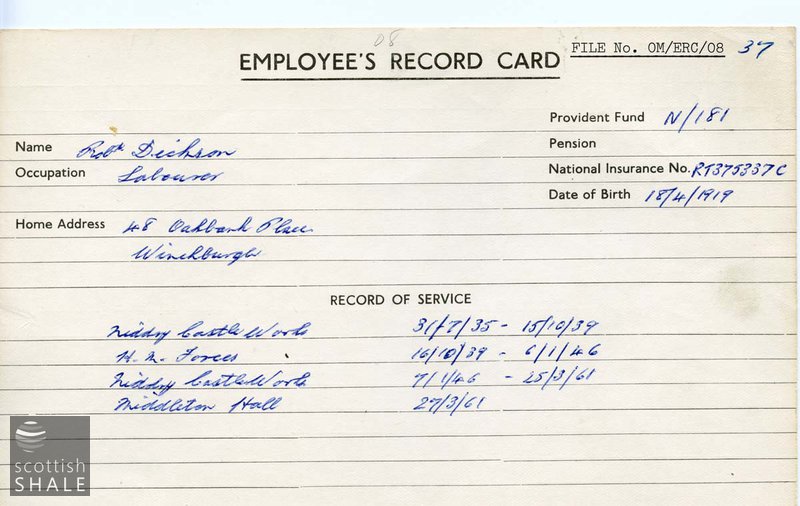 08
EMPLOYEE'S RECORD CARD
FILE No. OM/ERC/08 37
Provident Fund N/181
Name Robt Dickson
Pension
Occupation Labourer
National Insurance No. RT375337C
Date of Birth 18/4/1919
Home Address 48 Oakbank Place
Winchburgh
RECORD OF SERVICE
Niddry Castle Works 31/7/35 - 15/10/39
H.M. Forces 16/10/39 - 6/1/46
Niddry Castle Works 7/1/46 - 25/3/61
Middleton Hall 27/3/61
scottish
SHALE